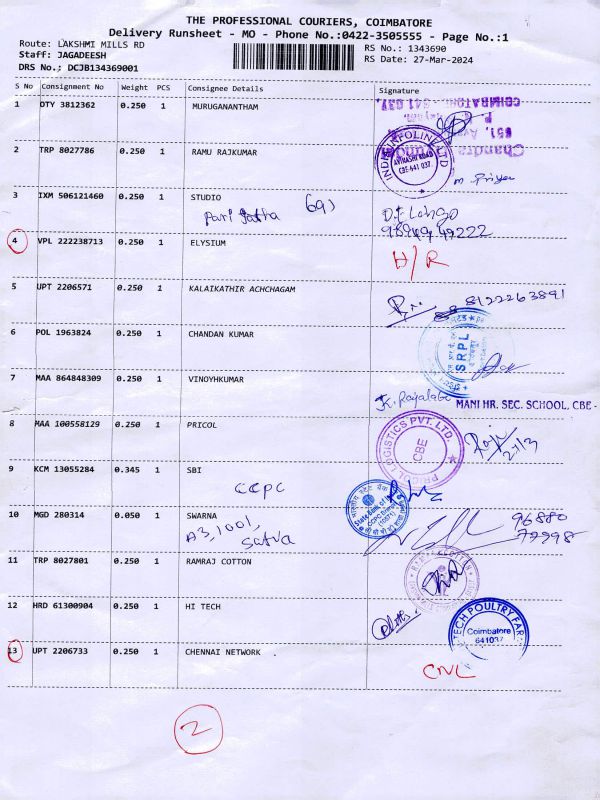 THE PROFESSIONAL COURIERS, COIMBATORE
Delivery Runsheet - MO - Phone No.:0422-3505555 - Page No.:1
Route: LAKSHMI MILLS RD
RS No.: 1343690
Staff: JAGADEESH
RS Date: 27-Mar-2024
DRS No.: DCJB134369001
S No Consignment No Weight PCS Consignee Details Signature
1 DTY 3812362 0.250 1 MURUGANANTHAM
COIMBATORE 641 037.
2 TRP 8027786 0.250 1 RAMU RAJKUMAR
AVINASHI ROAD
CBE-641 037
M. Priya
3 IXM 506121460 0.250 1 STUDIO
4 VPL 222238713 0.250 1 ELYSIUM H/R
5 UPT 2206571 0.250 1 KALAIKATHIR ACHCHAGAM
8122263891
6 POL 1963824 0.250 1 CHANDAN KUMAR
SRPL
7 MAA 864848309 0.250 1 VINOYHKUMAR
MANI HR. SEC. SCHOOL, CBE -
8 MAA 100558129 0.250 1 PRICOL
PRICOL LOGISTICS PVT. LTD.
CBE
27/3
9 KCM 13055284 0.345 1 SBI
CCPC
10 MGD 280314 0.050 1 SWARNA
A3, 1001,
96880
72998
11 TRP 8027801 0.250 1 RAMRAJ COTTON
12 HRD 61300904 0.250 1 HI TECH
TECH POULTRY FAR
Coimbatore
641037
13 UPT 2206733 0.250 1 CHENNAI NETWORK
CNL
2